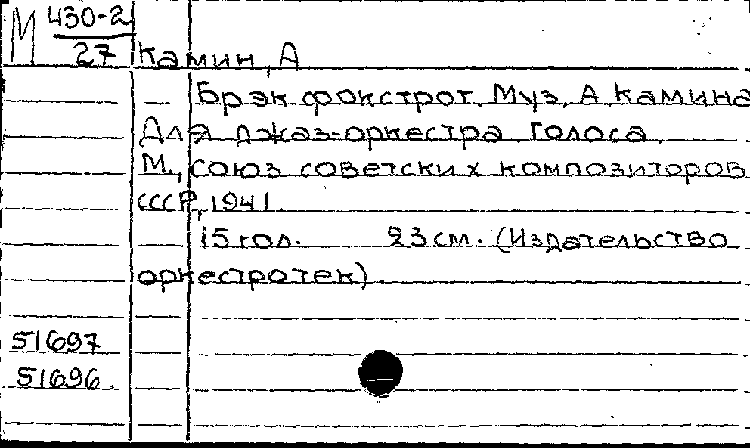 М 430-2
27
Камин, А
Брэк фокстрот. Муз. А Камина
Для джаз-оркестра Голоса.
М., Союз советских композиторов
СССР, 1941
15 гол. 23 см. (Издательство
оркестротек)
51697
51696